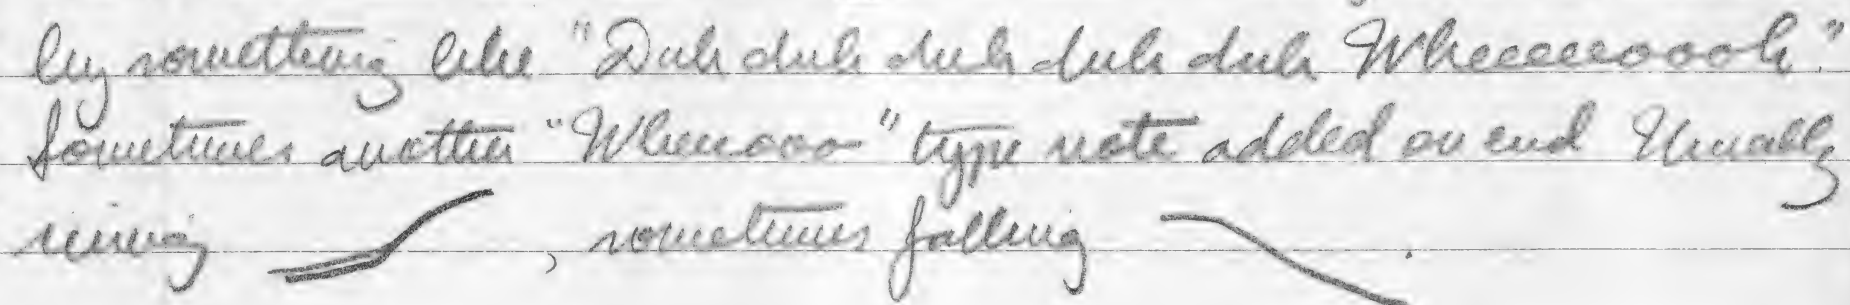 by something like "Duh duh duh duh duh Wheeeeeoooh."
Sometimes another "Wheeoooo" type note added on end Usually
rising , sometimes falling .